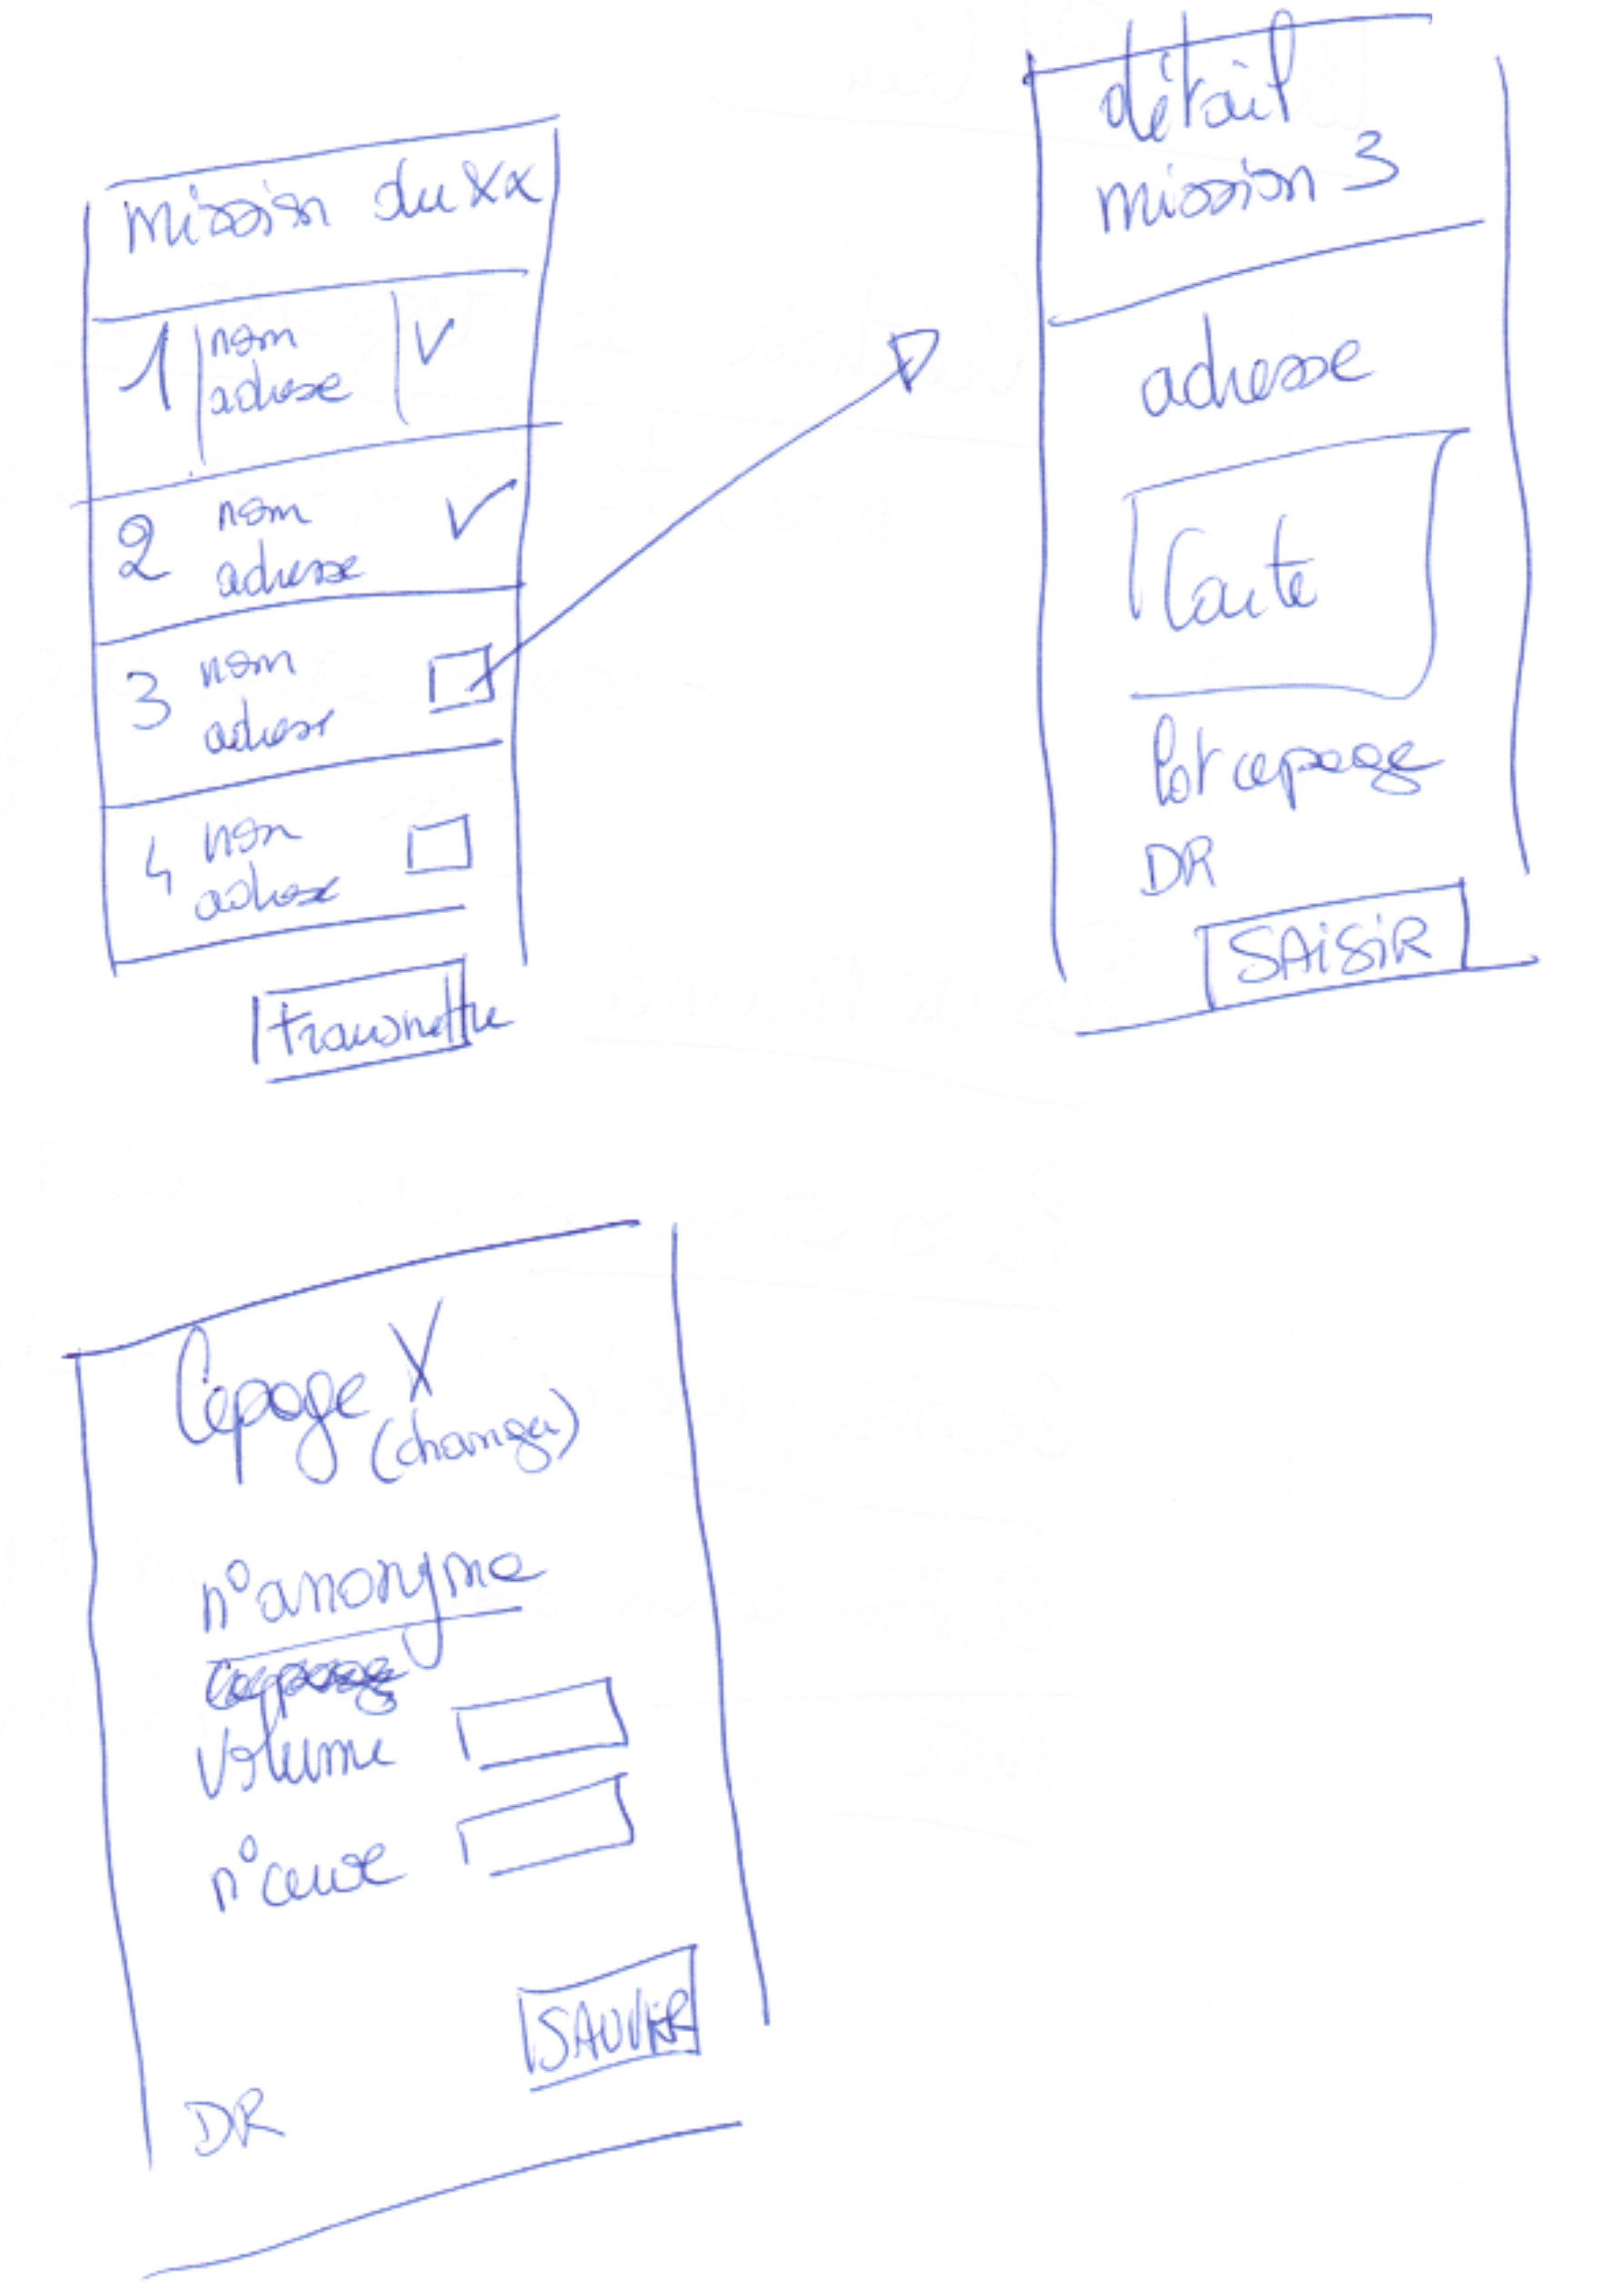 mission du xx
1 nom
adresse
2 nom
adresse
3 nom
adresse
4 nom
adresse
transmettre
détail
mission 3
adresse
Carte
lot cepage
DR
SAISIR
Cepage X
(changer)
n° anonyme
cepage
volume
n° cuve
SAUVER
DR